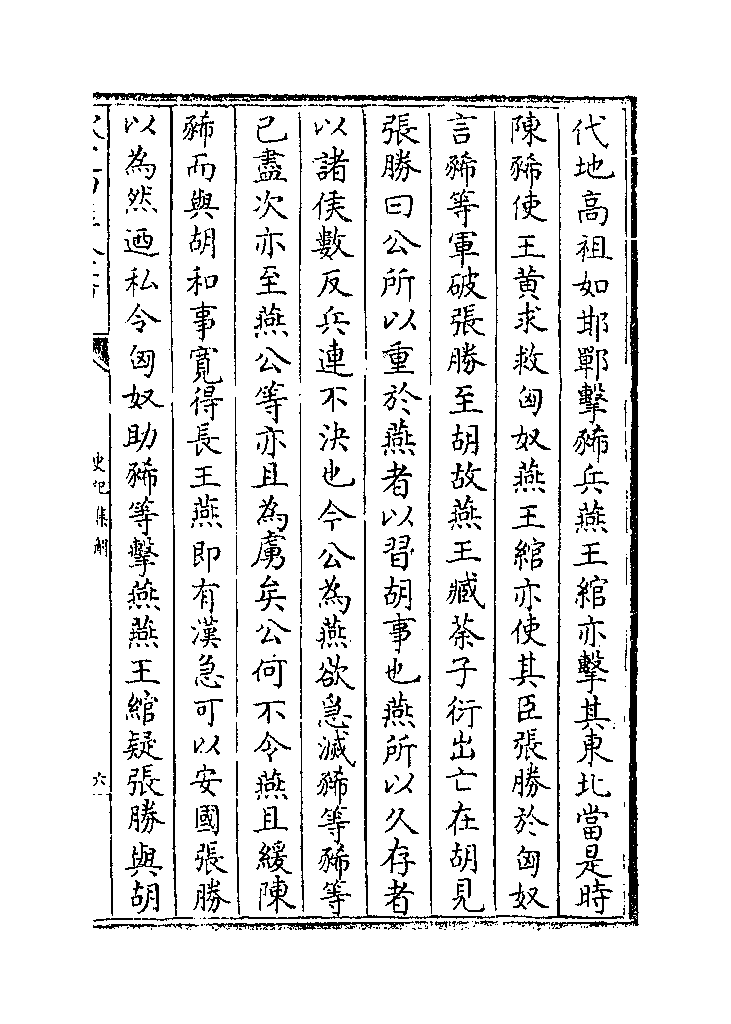 代地高祖如邯鄲擊豨兵燕王綰亦擊其東北當是時
陳豨使王黄求救匈奴燕王綰亦使其臣張勝於匈奴
言豨等軍破張勝至胡故燕王臧荼子衍出亡在胡見
張勝曰公所以重於燕者以習胡事也燕所以久存者
以諸侯數反兵連不決也今公為燕欲急滅豨等豨等
已盡次亦至燕公等亦且為虜矣公何不令燕且緩陳
豨而與胡和事寛得長王燕即有漢急可以安國張勝
以為然迺私令匈奴助豨等擊燕燕王綰疑張勝與胡
史記集解
六